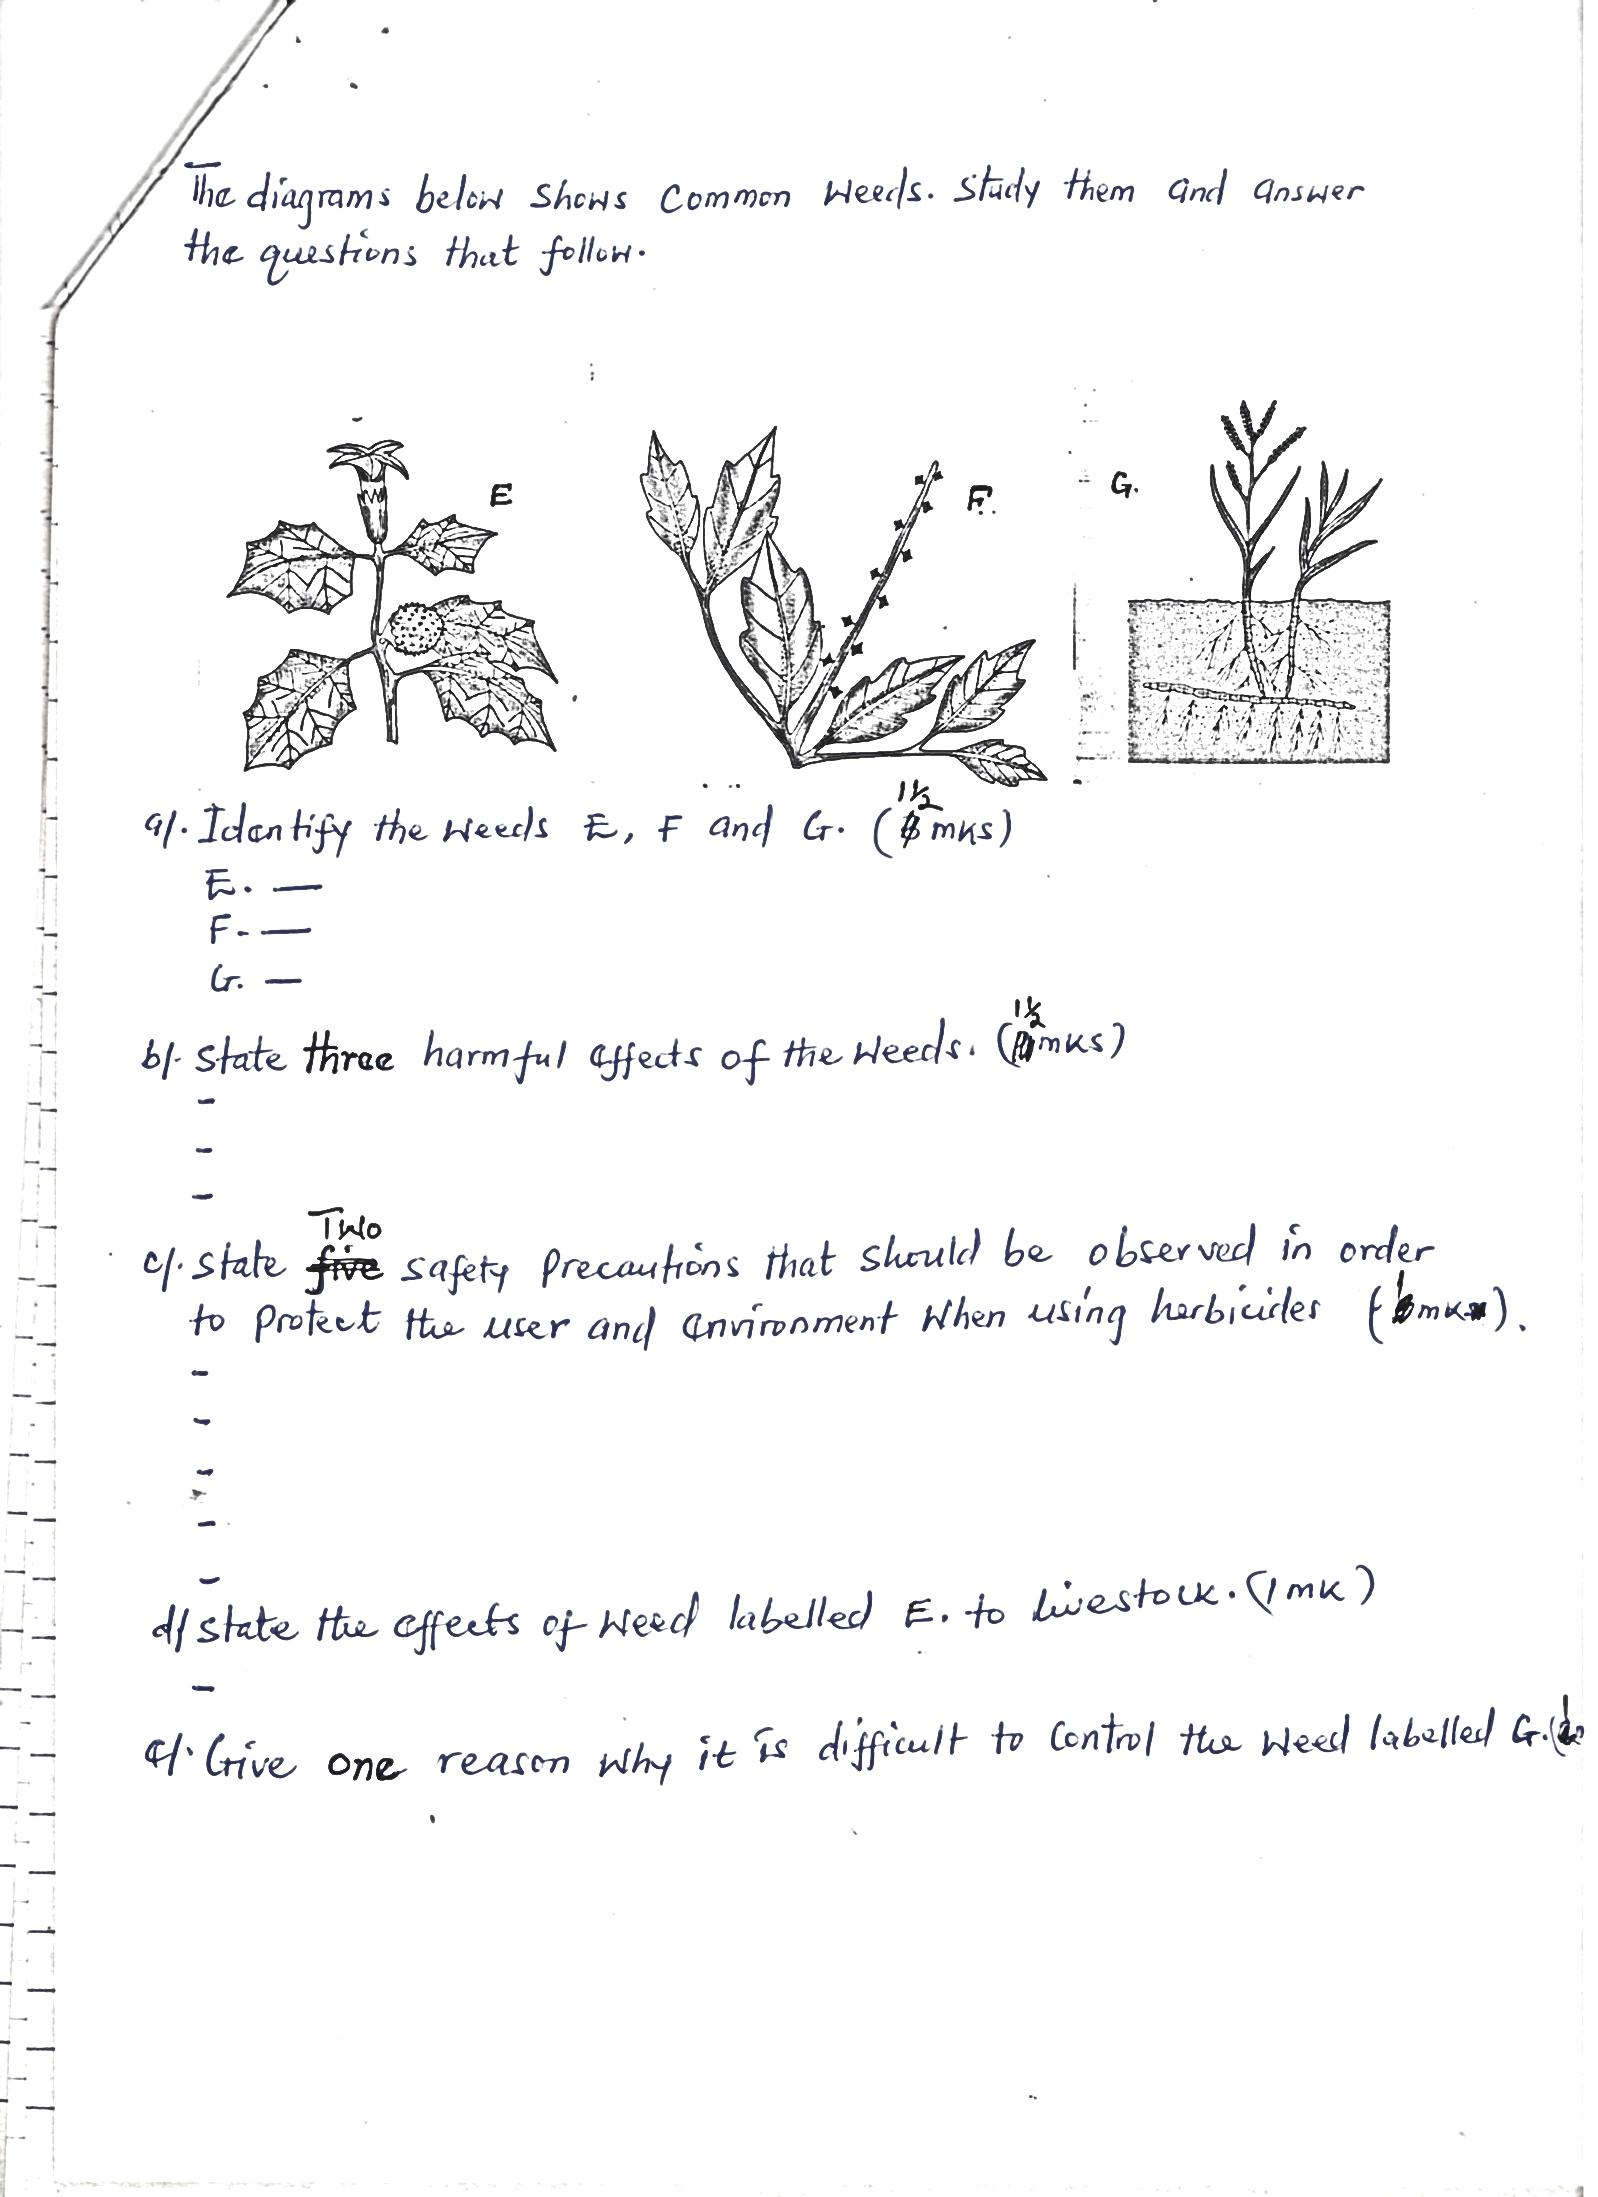 The diagrams below Shows Common Weeds. Study them and answer
the questions that follow.
E
F.
G.
a/. Identify the Weeds E, F and G. (1½ mks)
E. —
F. —
G. —
b/. State three harmful effects of the Weeds. (1½ mks)
-
-
-
Two
c/. State five safety Precautions that should be observed in order
to Protect the user and environment When using herbicides (1 mk).
-
-
-
-
-
d/ State the effects of Weed labelled E. to livestock. (1 mk)
-
e/. Give one reason Why it is difficult to Control the Weed labelled G. (